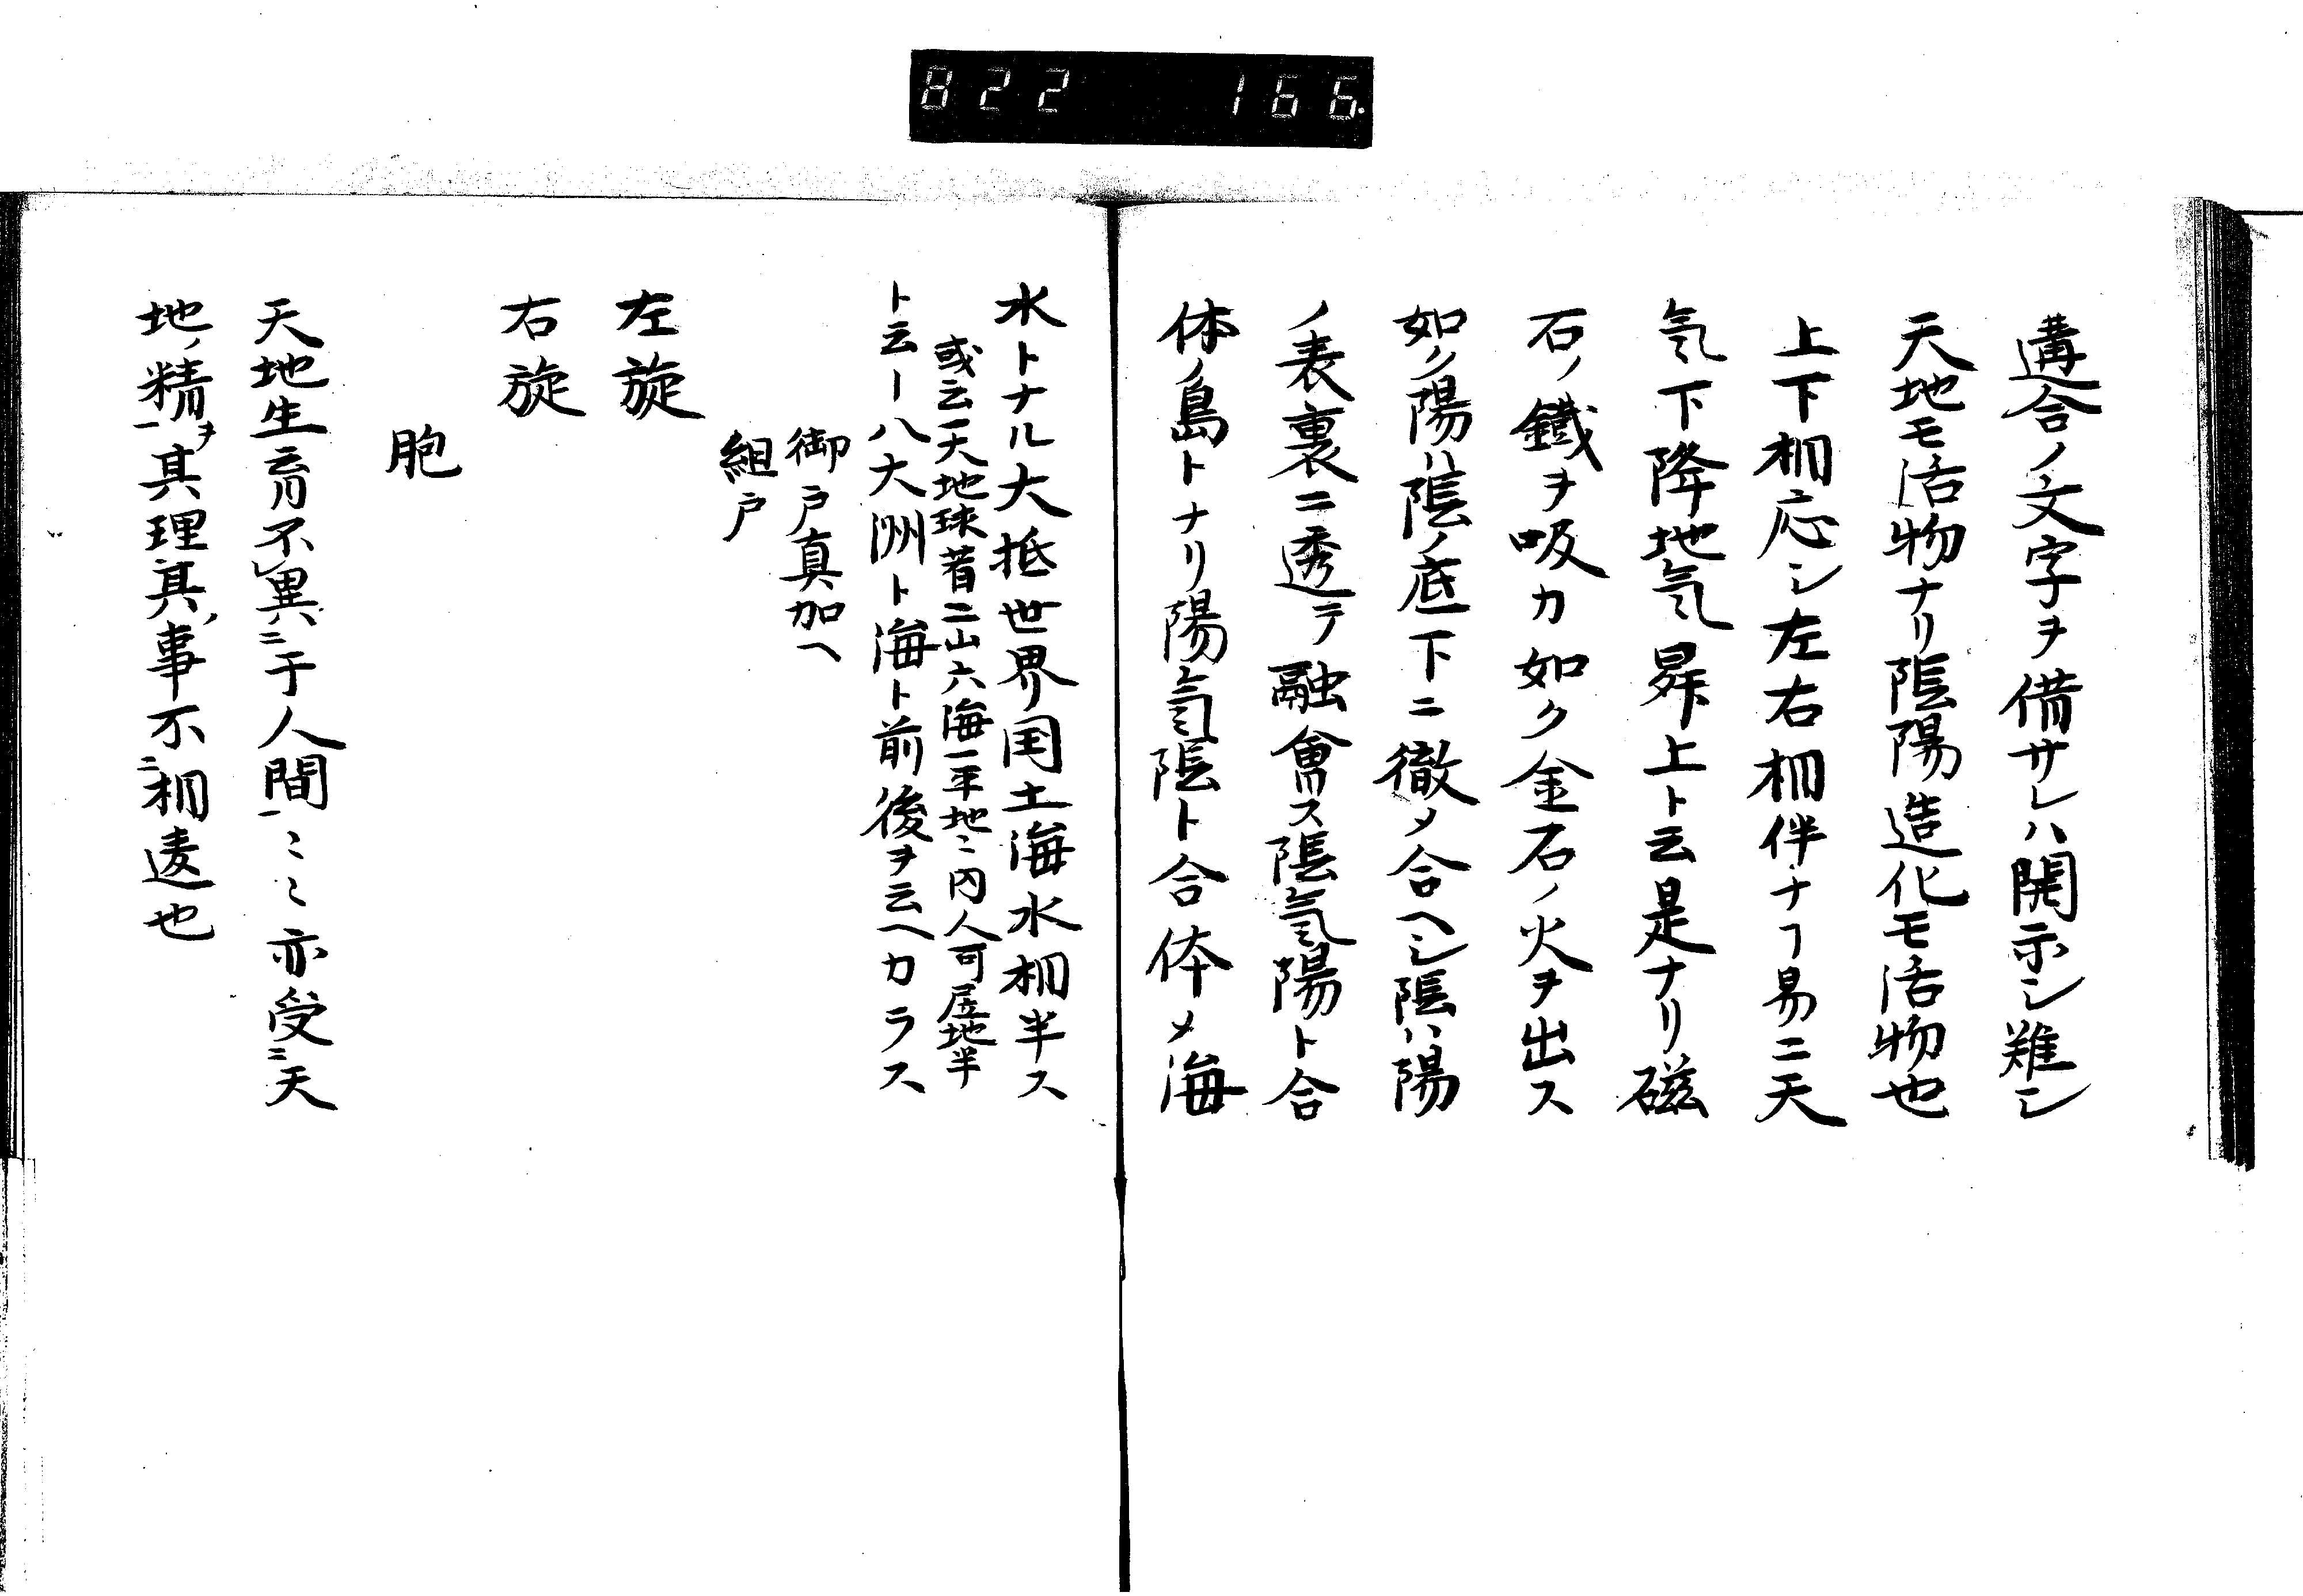 822 166.
遘合ノ文字ヲ備サレハ開示シ難シ
天地モ活物ナリ陰陽造化モ活物也
上下相応シ左右相伴ナフ易ニ天
気下降地気昇上ト云是ナリ磁
石ノ鐵ヲ吸カ如ク金石ノ火ヲ出ス
如ク陽ハ陰ノ底下ニ徹メ合ヘシ陰ハ陽
ノ表裏ニ透テ融會ス陰氣陽ト合
体ノ島トナリ陽氣陰ト合体メ海
水トナル大抵世界国土海水相半ス
或云天地球者二山六海一平地ニ内人可居地半
ト云ー八大洲ト海ト前後ヲ云ヘカラス
御戸真加ヘ
組戸
左旋
右旋
胞
天地生育不レ異ニ于人間一ミミ亦受ニ天
地ノ精ヲ一其理其ノ事不ニ相違也